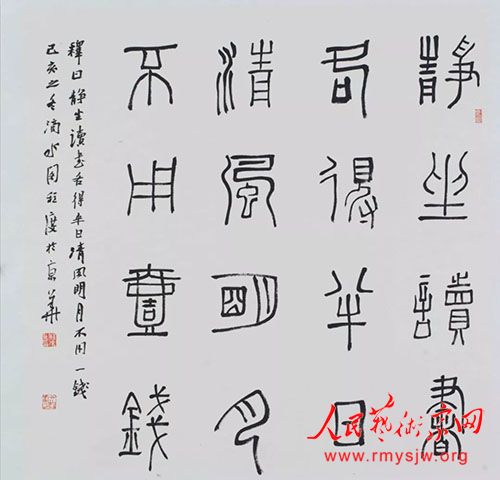 靜坐讀書
各得半日
清風明月
不用壹錢
釋曰静坐讀書各得半日清風明月不用一錢
己亥之冬滴水閣度於京華
人民藝術家网
www.rmysjw.org